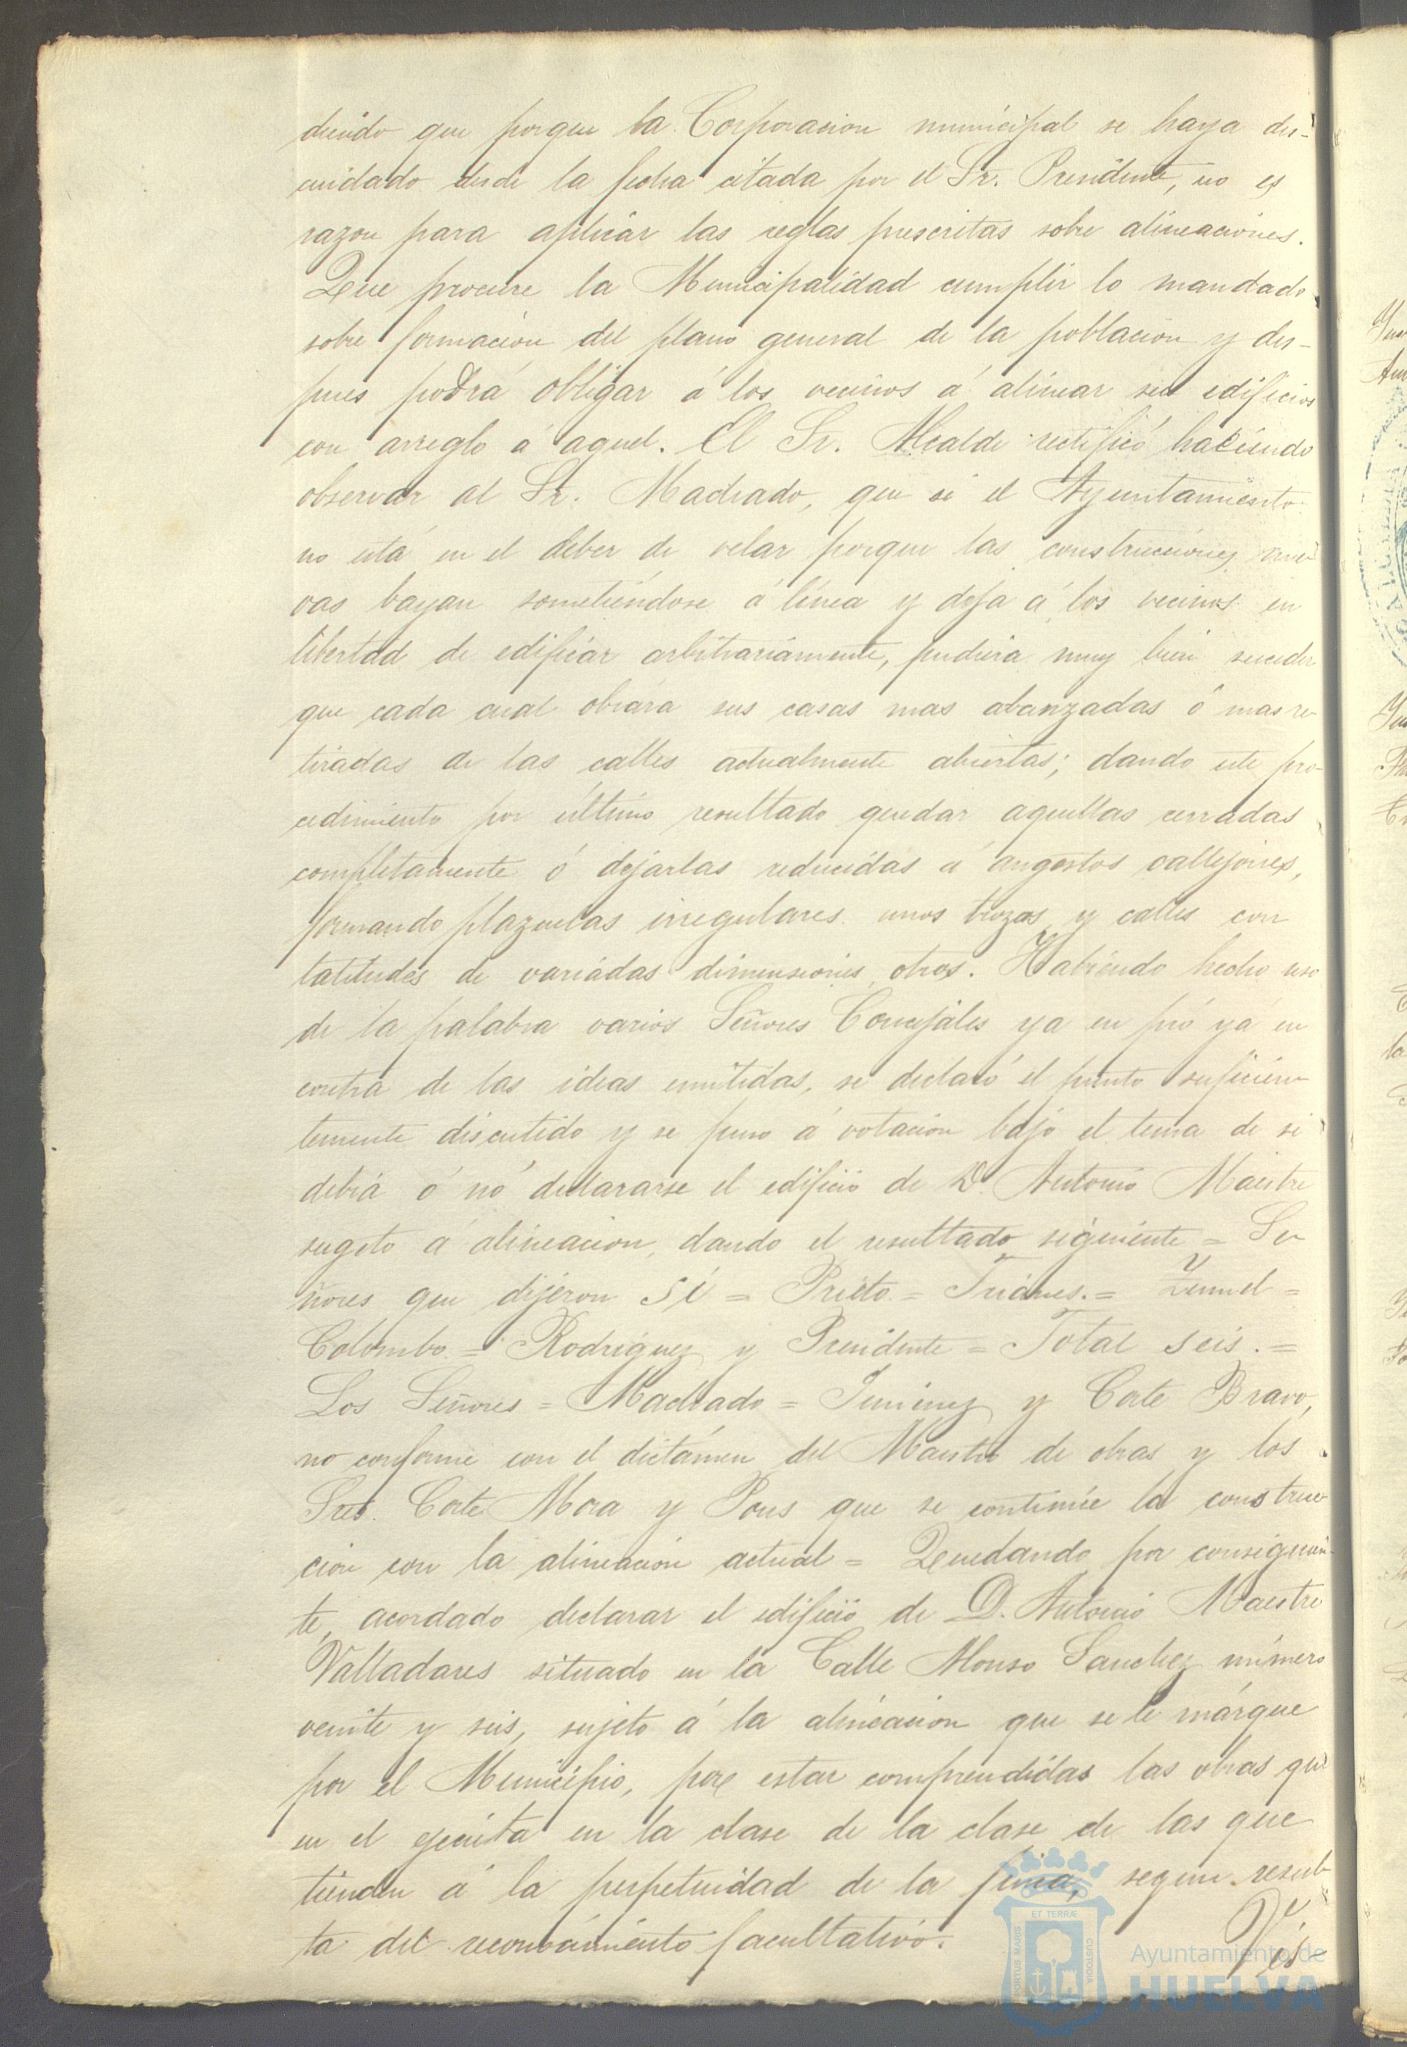 diendo que porque la Corporacion municipal se haya des-
cuidado desde la fecha citada por el Sr. Presidente, no es
razon para aplicar las reglas prescritas sobre alineaciones.
Que procure la Municipalidad cumplir lo mandado
sobre formacion del plano general de la poblacion y des-
pues podrá obligar á los vecinos á alinear sus edificios
con arreglo á aquel. El Sr. Alcalde rectificó haciendo
observar al Sr. Machado, que si el Ayuntamiento
no está en el deber de velar porque las construcciones nue-
vas bayan sometiéndose á línea y deja á los vecinos en
libertad de edificar arbitrariamente, pudiera muy bien suceder
que cada cual obrára sus casas mas abanzadas ó mas re-
tiradas de las calles actualmente abiertas; dando este pro-
cedimiento por último resultado quedar aquellas cerradas
completamente ó dejarlas reducidas á angostos callejones,
formando plazuelas irregulares unos trozos y calles con
latitudes de variadas dimensiones otros. Habiendo hecho uso
de la palabra varios Señores Concejales ya en pró yá en
contra de las ideas emitidas, se declaró el punto suficien-
temente discutido y se puso á votacion bajo el tema de si
debia ó nó declararse el edificio de D. Antonio Maestre
sugeto á alineacion, dando el resultado siguiente = Se-
ñores que dijeron Sí = Prieto = Triánes. = =
Colombo = Rodriguez y Presidente = Total seis. =
Los Señores = Machado = Jimenez y Corte Bravo,
no conforme con el dictámen del Maestro de obras y los
Sres. Corte Mora y Pous que se continúe la construc-
cion con la alineacion actual = Quedando por consiguien-
te, acordado declarar el edificio de D. Antonio Maestre
Valladares situado en la Calle Alonso Sanchez número
veinte y seis, sujeto á la alineacion que se le márque
por el Municipio, por estar comprendidas las obras que
en el ejecuta en la clase de la clase de las que
tienden á la perpetuidad de la finca, segun resul-
ta del reconocimiento facultativo.
Vis-
PORTUS MARIS
ET TERRÆ
CUSTODIA
Ayuntamiento de
HUELVA